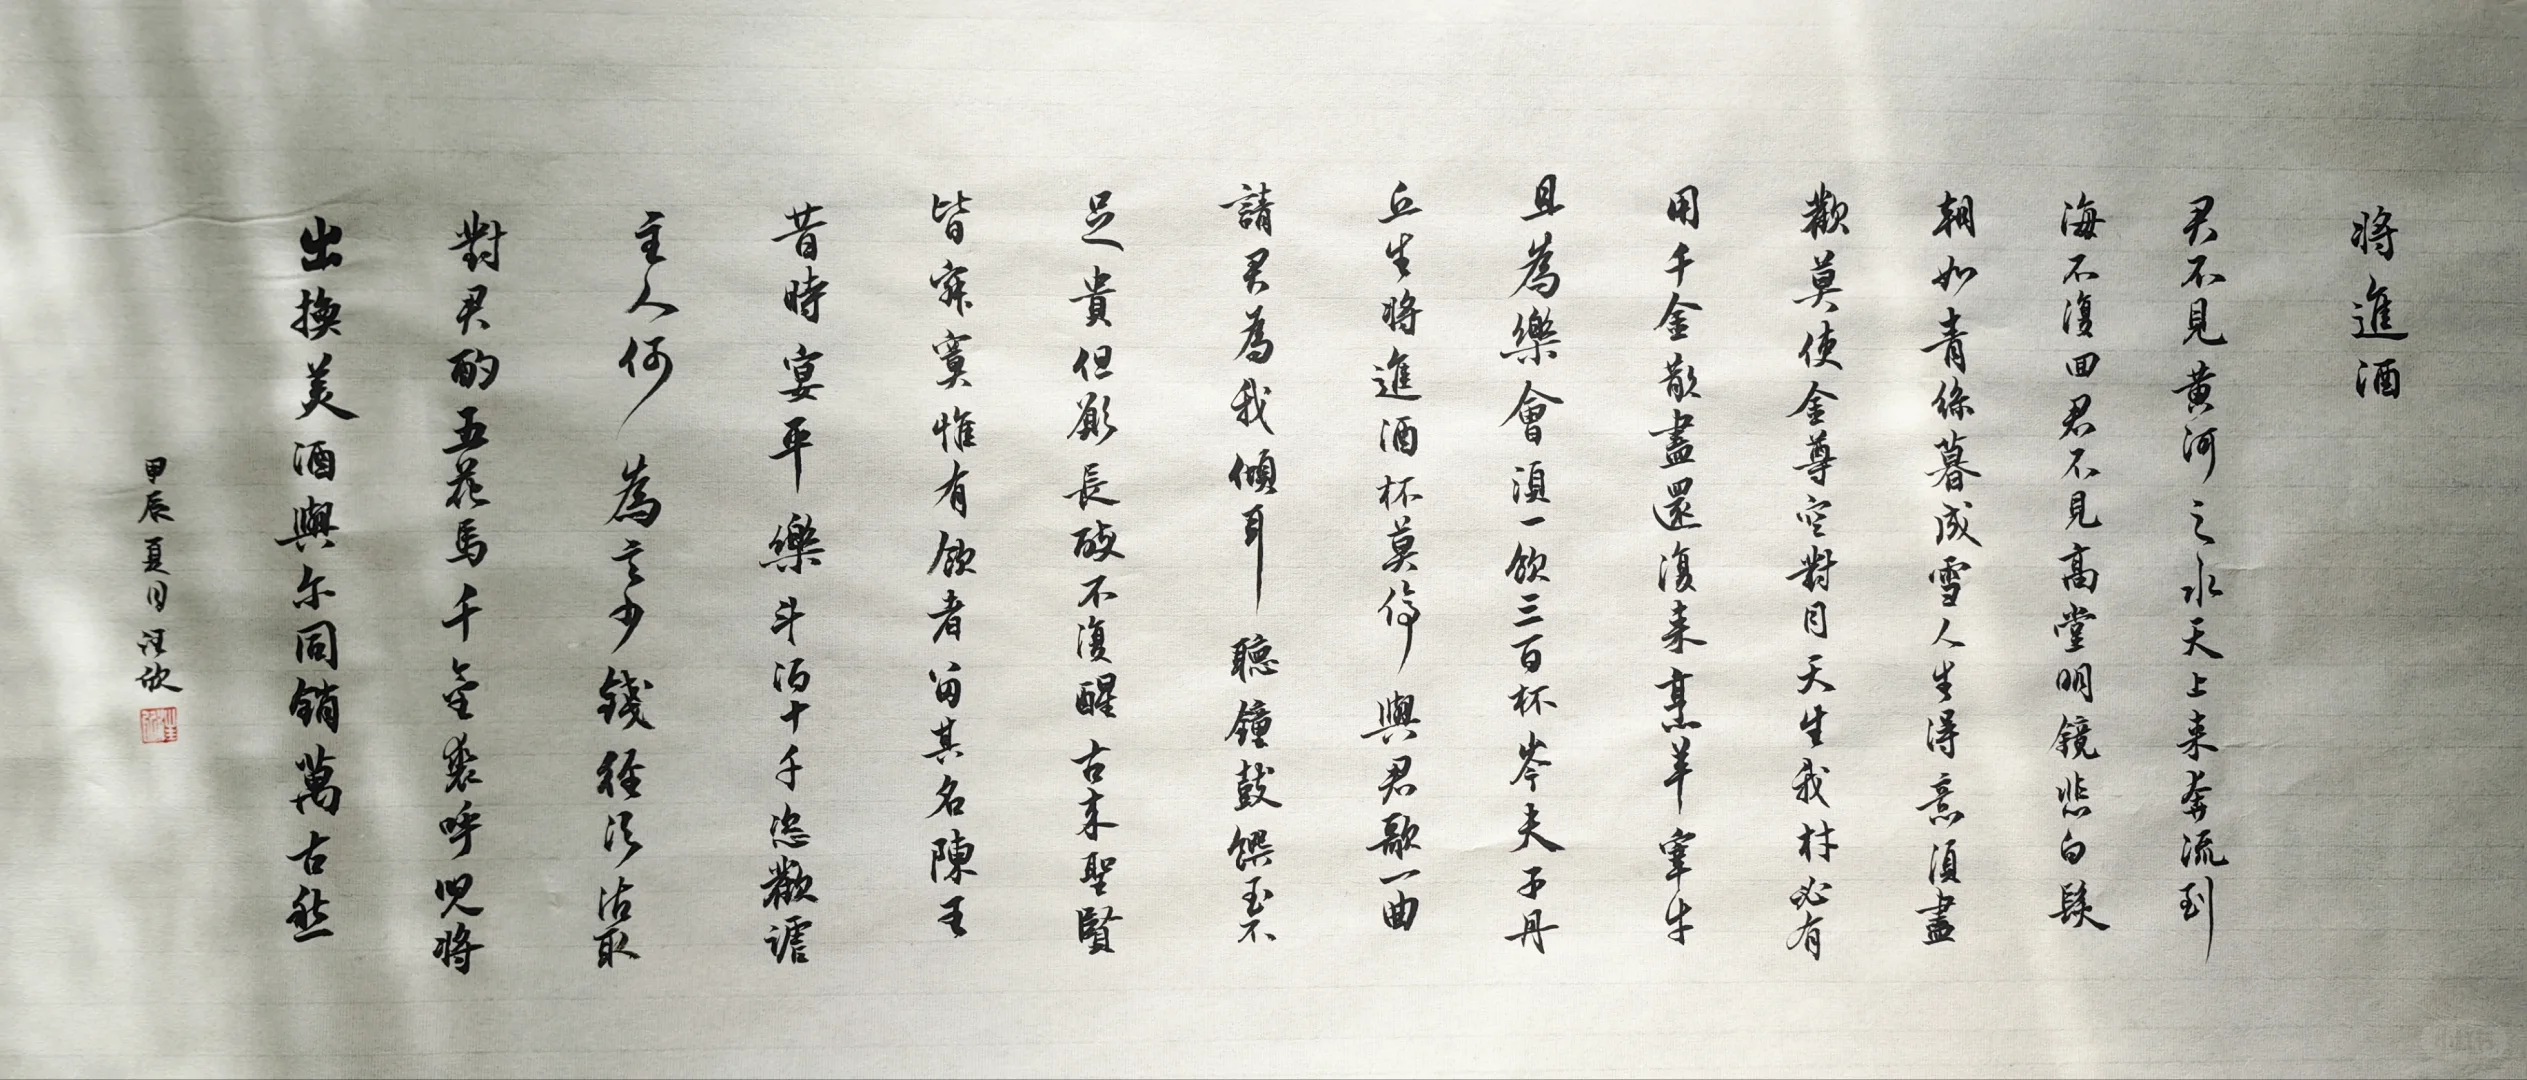 將進酒
君不見黃河之水天上来奔流到
海不復回君不見高堂明鏡悲白髮
朝如青絲暮成雪人生得意須盡
歡莫使金尊空對月天生我材必有
用千金散盡還復来烹羊宰牛
且為樂會須一飲三百杯岑夫子丹
丘生將進酒杯莫停與君歌一曲
請君為我傾耳聽鐘鼓饌玉不
足貴但願長醉不復醒古来聖賢
皆寂寞惟有飲者留其名陳王
昔時宴平樂斗酒十千恣歡謔
主人何為言少錢徑須沽取
對君酌五花馬千金裘呼兒將
出換美酒與尔同銷萬古愁
甲辰夏月汪欣